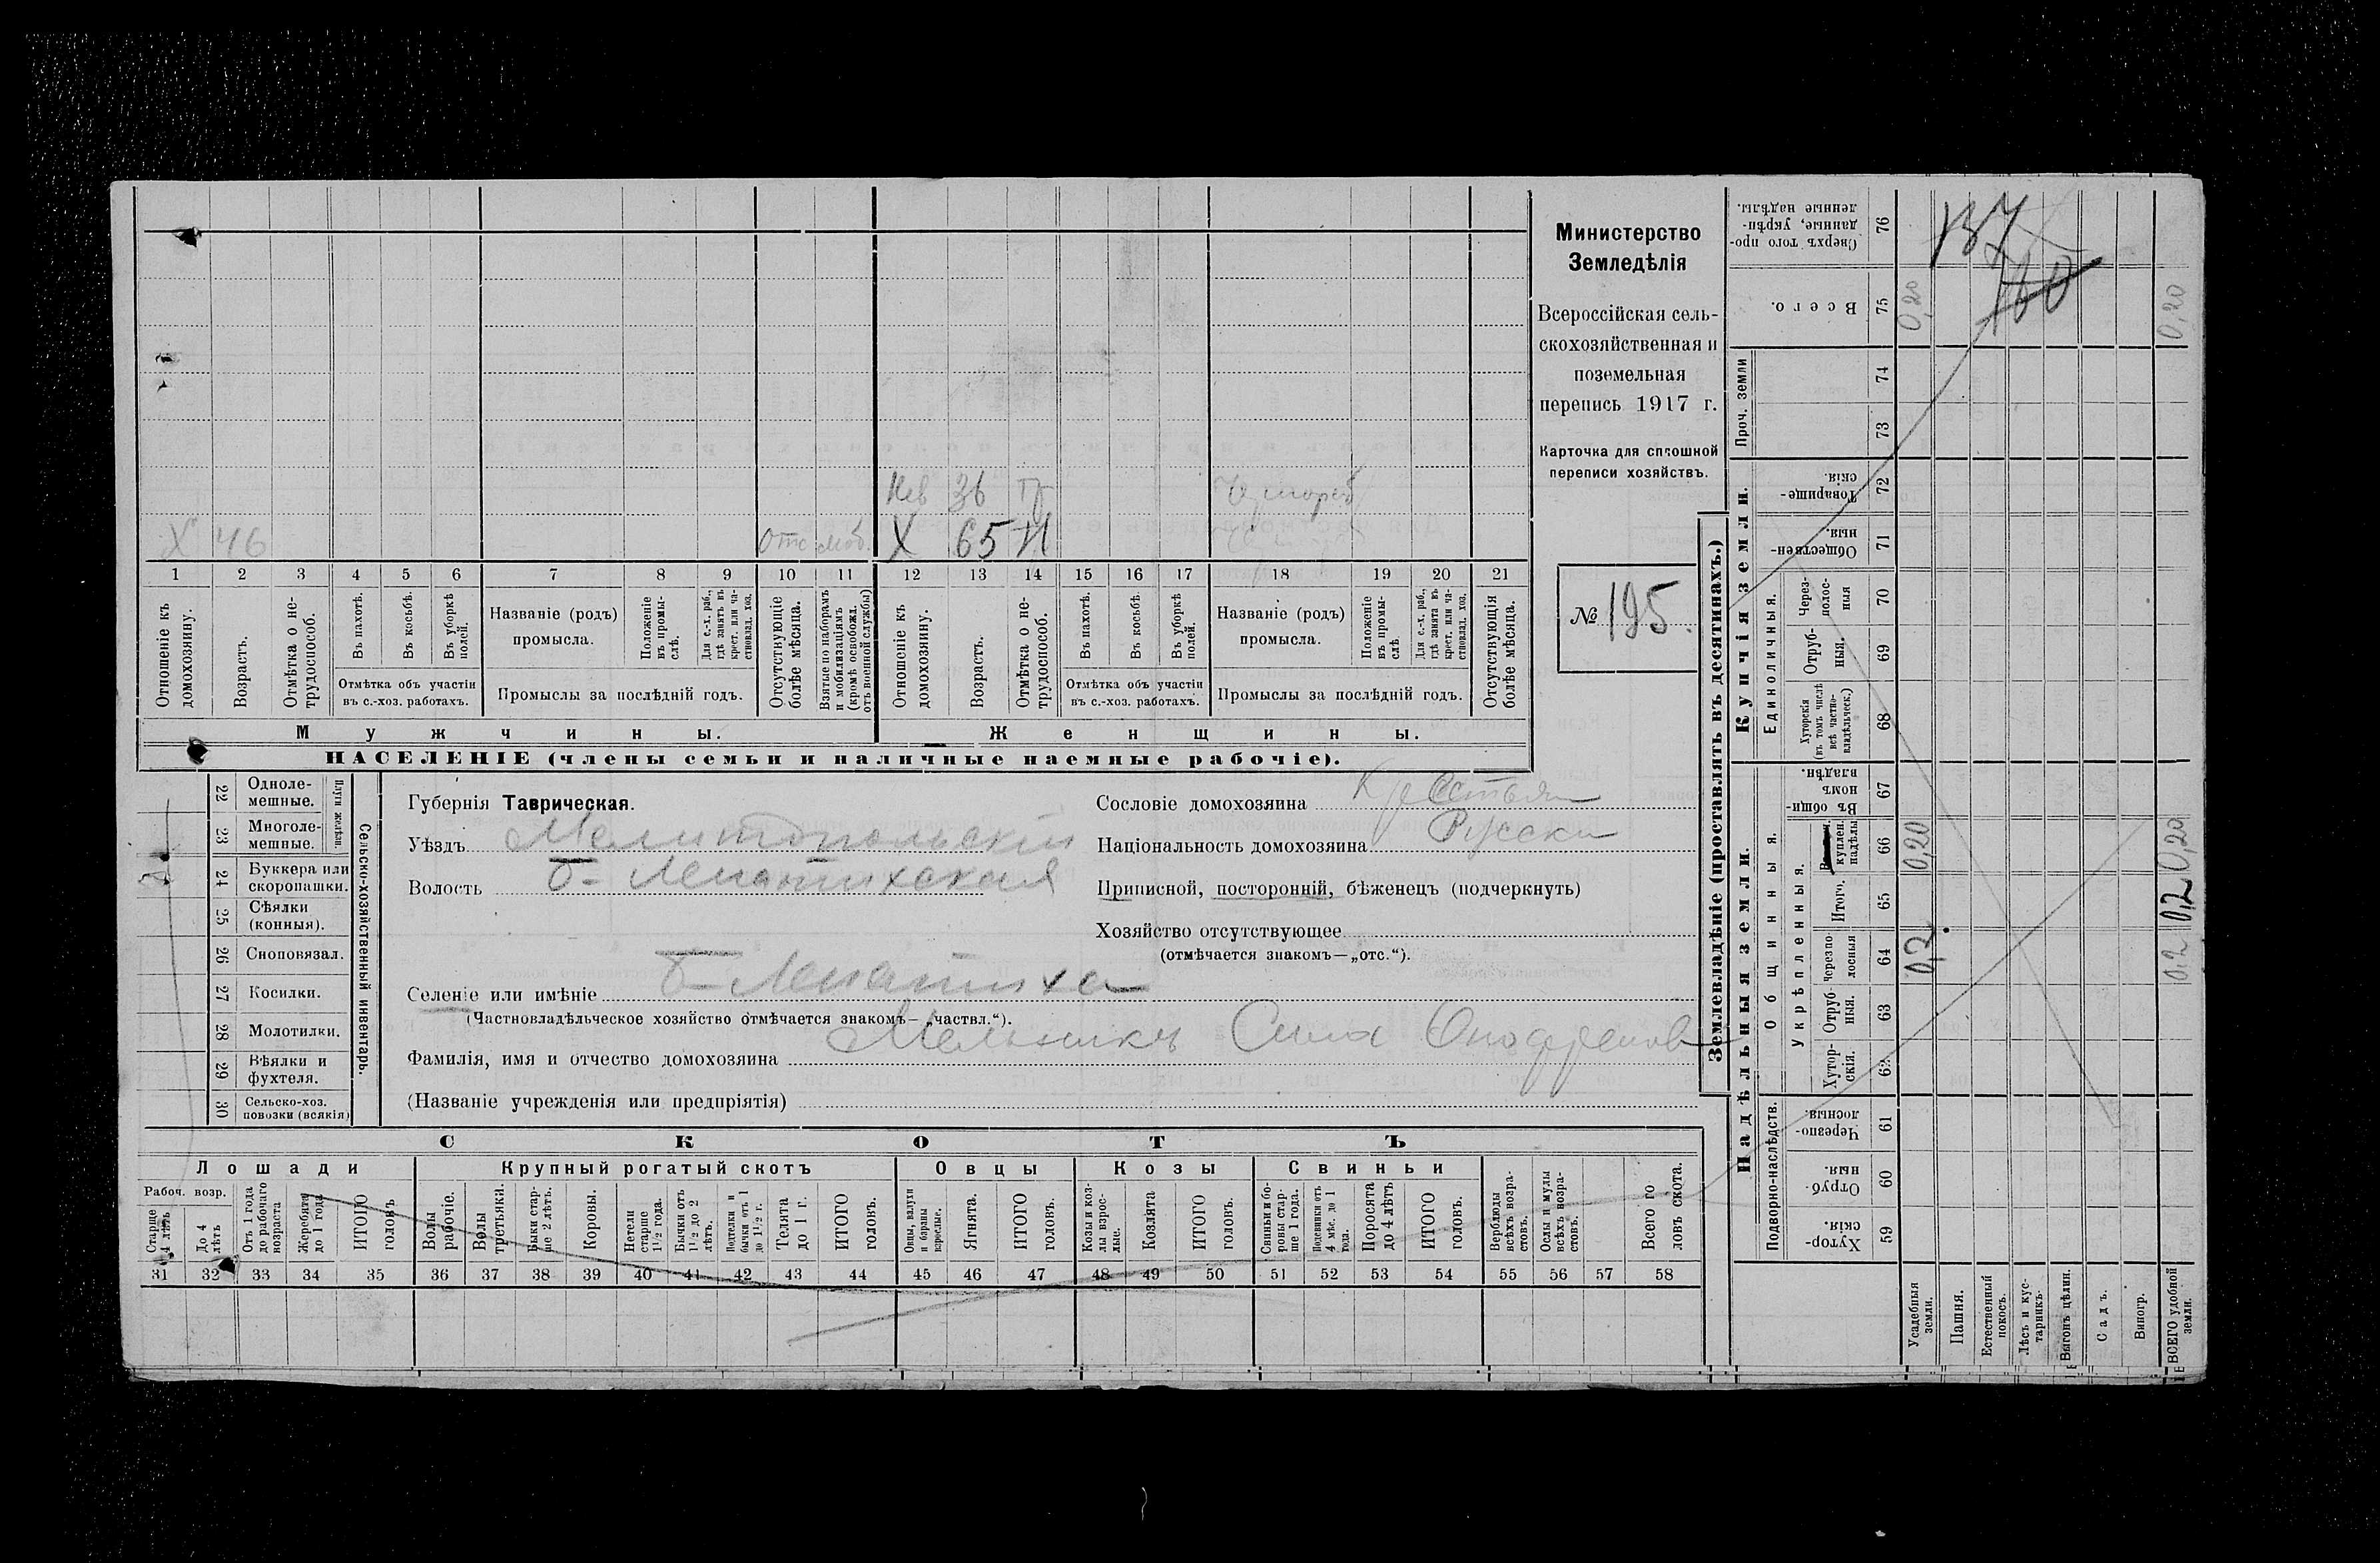 Министерство
Земледѣлія
Всероссійская сель-
скохозяйственная и
поземельная
перепись 1917 г.
Карточка для сплошной
переписи хозяйствъ.
№ 195.
Нев 36
Х 46 Отс моб. Х 65 Н
1 2 3 4 5 6 7 8 9 10 11 12 13 14 15 16 17 18 19 20 21
Отношеніе къ домохозяину.
Возрастъ.
Отмѣтка о не-трудоспособ.
Въ пахотѣ.
Въ косьбѣ.
Въ уборкѣ полей.
Отмѣтка объ участіи въ с.-хоз. работахъ.
Названіе (родъ) промысла.
Положеніе въ промы-слѣ.
Для с.-х. раб., гдѣ занятъ въ крест. или ча-стновлад. хоз.
Промыслы за послѣдній годъ.
Отсутствующіе болѣе мѣсяца.
Взятые по наборамъ и мобилизаціямъ (кромѣ освобожд. отъ военной службы)
Отношеніе къ домохозяину.
Возрастъ.
Отмѣтка о не-трудоспособ.
Въ пахотѣ.
Въ косьбѣ.
Въ уборкѣ полей.
Отмѣтка объ участіи въ с.-хоз. работахъ.
Названіе (родъ) промысла.
Положеніе въ промы-слѣ.
Для с.-х. раб., гдѣ занята въ крест. или ча-стновлад. хоз.
Промыслы за послѣдній годъ.
Отсутствующія болѣе мѣсяца.
Мужчины. Женщины.
НАСЕЛЕНІЕ (члены семьи и наличные наемные рабочіе).
22 Одноле-мешные.
23 Многоле-мешные.
Плуги желѣзн.
24 Буккера или скоропашки.
25 Сѣялки (конныя).
26 Сноповязал.
27 Косилки.
28 Молотилки.
29 Вѣялки и фухтеля.
30 Сельско-хоз. повозки (всякія)
Сельско-хозяйственный инвентарь.
Губернія Таврическая.
Уѣздъ Мелитопольскій
Волость Б-Лепатихская
Селеніе или имѣніе Б-Лепатиха
(Частновладѣльческое хозяйство отмѣчается знакомъ—„частвл.“).
Фамилія, имя и отчество домохозяина Мельникъ Сила Онофреевъ
(Названіе учрежденія или предпріятія)
Сословіе домохозяина Крестьян
Національность домохозяина Русски
Приписной, посторонній, бѣженецъ (подчеркнуть)
Хозяйство отсутствующее
(отмѣчается знакомъ—„отс.“).
СКОТЪ
Лошади Крупный рогатый скотъ Овцы Козы Свиньи
Рабоч. возр.
Старше 4 лѣтъ
До 4 лѣтъ
Отъ 1 года до рабочаго возраста
Жеребята до 1 года
ИТОГО головъ
Волы рабочіе.
Волы третьяки.
Быки стар-ше 2 лѣтъ.
Коровы.
Нетели старше 1½ года.
Бычки отъ 1½ до 2 лѣтъ.
Подтелки и бычки отъ 1 до 1½ г.
Телята до 1 г.
ИТОГО головъ.
Овцы, валухи и бараны взрослые.
Ягнята.
ИТОГО головъ.
Козы и коз-лы взрос-лые.
Козлята
ИТОГО головъ.
Свиньи и бо-ровы стар-ше 1 года.
Подсвинки отъ 4 мѣс. до 1 года.
Поросята до 4 лѣтъ
ИТОГО головъ.
Верблюды всѣхъ возра-стовъ.
Ослы и мулы всѣхъ возра-стовъ.
Всего го ловъ скота.
31 32 33 34 35 36 37 38 39 40 41 42 43 44 45 46 47 48 49 50 51 52 53 54 55 56 57 58
Землевладѣніе (проставлять въ десятинахъ.)
Надѣльныя земли. Купчія земли.
Проч. земли
Подворно-наслѣдств.
Общинныя.
Укрѣпленныя.
Единоличныя.
Сверхъ того про-данные, укрѣп-ленные надѣлы. 76
137
160
Всего. 75 0,20 0,20
74
73
Товарище-скія. 72
Обществен-ныя. 71
Через-полос-ныя 70
Отруб-ныя. 69
Хуторскія (въ томъ числѣ всѣ частно-владѣльческ.) 68
Въ общи-номъ владѣн. 67
куплен. надѣлы 66 0,20 0,20
Итого. 65 0,2
Черезпо-лосныя 64 0,2 0,2
Отруб-ныя. 63
Хутор-скія. 62
Черезпо-лосныя. 61
Отруб-ныя. 60
Хутор-скія. 59
Усадебныя земли.
Пашня.
Естественный покосъ.
Лѣсъ и кус-тарникъ.
Выгонъ цѣлин.
Садъ.
Виногр.
ВСЕГО удобной земли.